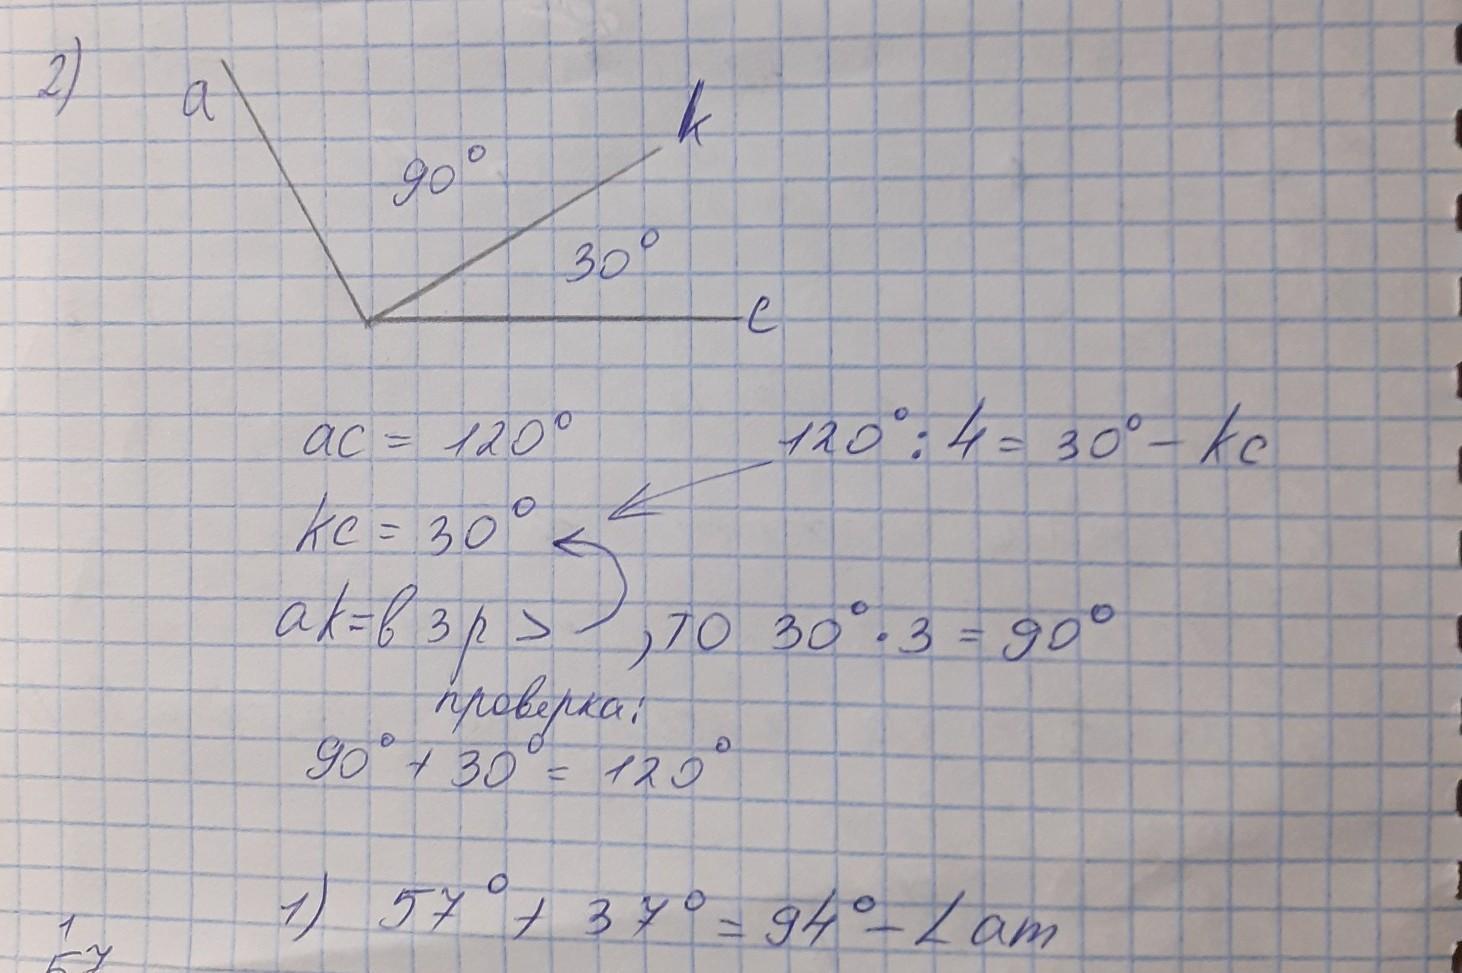 2)
a
k
90°
30°
c
ac = 120°
120° : 4 = 30° – kc
kc = 30°
ak = в 3 р >
, то 30° · 3 = 90°
проверка:
90° + 30° = 120°
1) 57° + 37° = 94° – ∠ am
1
57